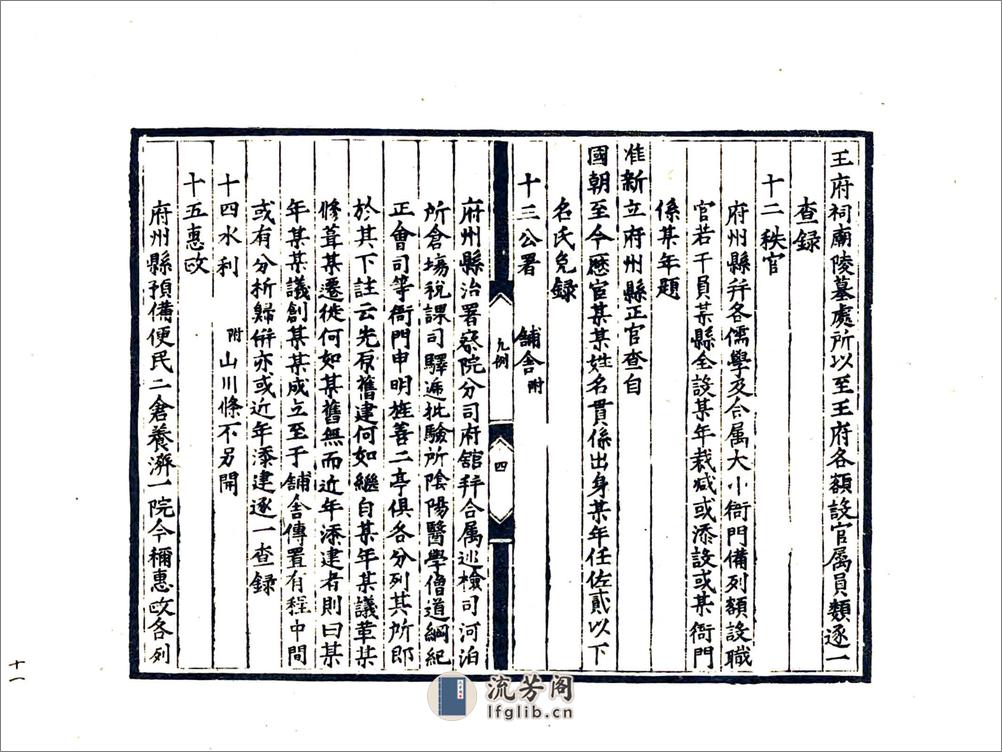 王府祠廟陵墓處所以至王府各額設官属員類逐一
查録
十二秩官
府州縣并各儒學及合属大小衙門備列額設職
官若干員某縣全設某年裁减或添設或某衙門
係某年題
准新立府州縣正官查自
國朝至今歷官某某姓名貫係出身某年任佐貳以下
名氏免録
十三公署 舖舍附
府州縣治署察院分司府舘并合属巡檢司河泊
所倉塲稅課司驛逓批驗所陰陽醫學僧道綱紀
正會司等衙門申明旌善二亭俱各分列其所即
於其下註云先原舊建何如繼自某年某議葺某
修葺某遷徙何如某舊無而近年添建者則曰某
年某某議創某某成立至于舖舍傳置有程中間
或有分析歸併亦或近年添建逐一查録
十四水利 附山川條不另開
十五惠政
府州縣預備便民二倉養濟一院今稱惠政各列
凡例
四
十一
流芳阁
lfglib.cn